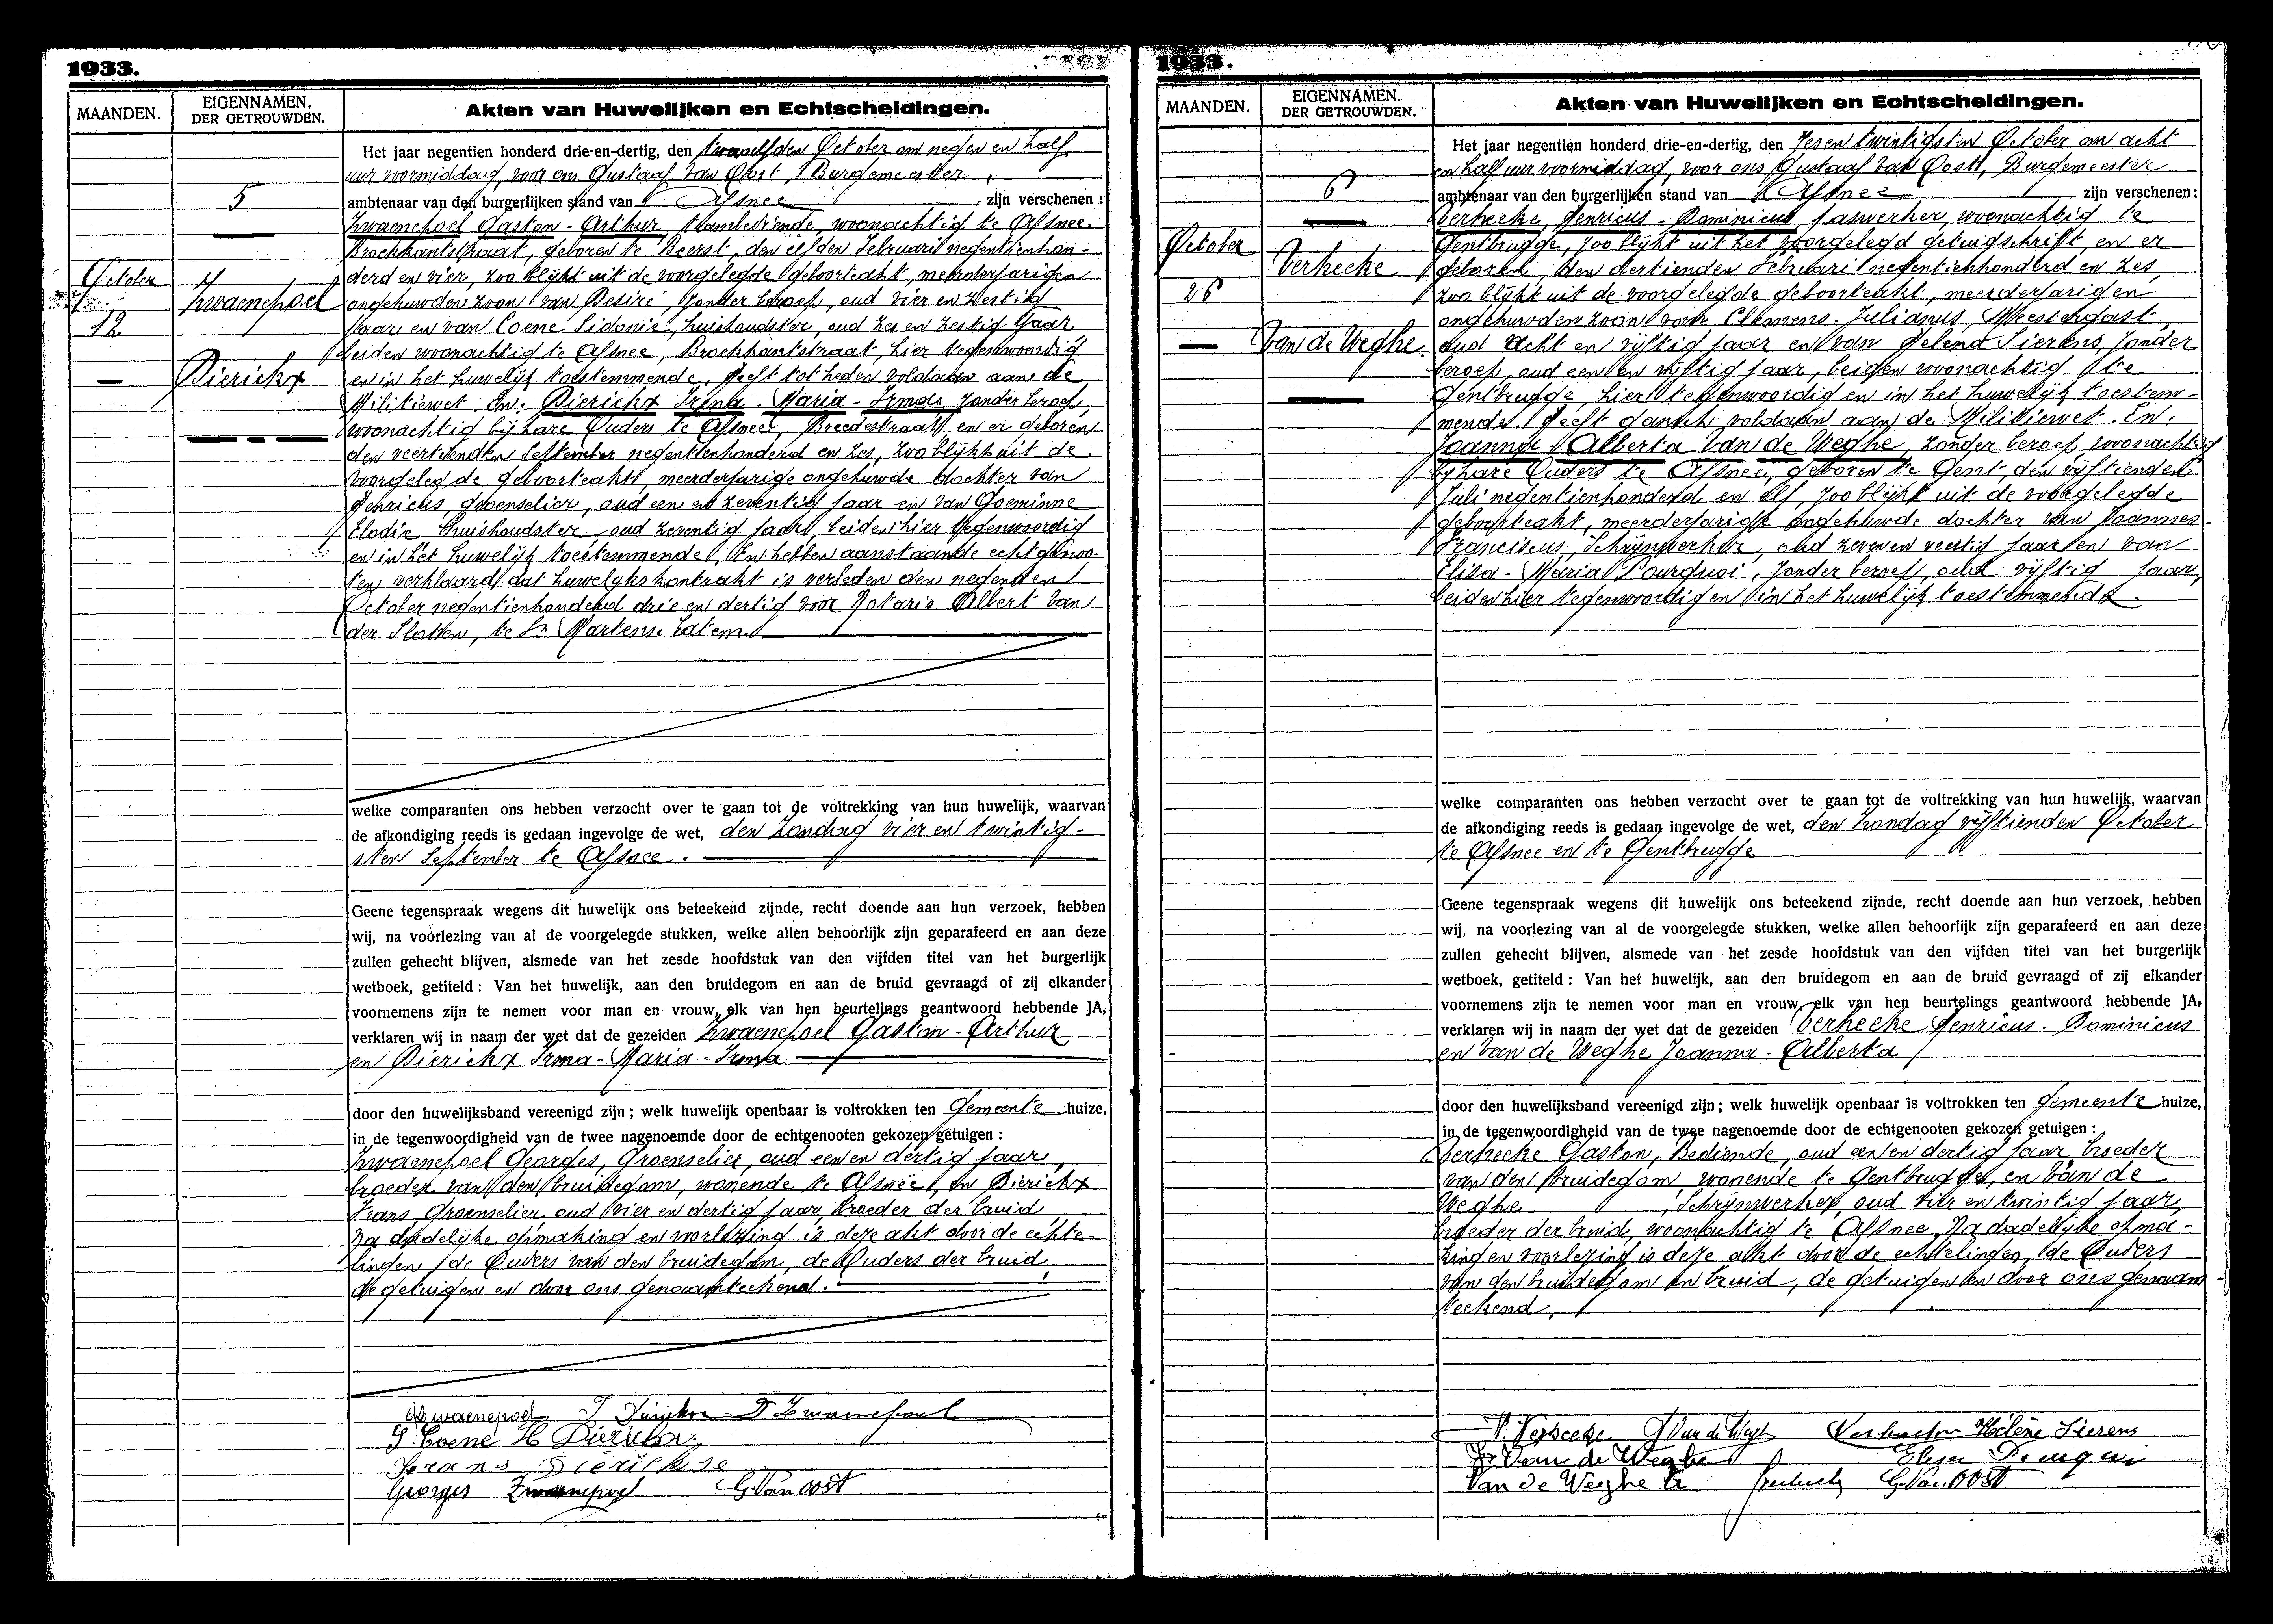 1933.
MAANDEN.
EIGENNAMEN.
DER GETROUWDEN.
Akten van Huwelijken en Echtscheidingen.
5
October
12
Zwaenepoel
Dierickx
Het jaar negentien honderd drie-en-dertig, den twaalfden October om negen en half
uur voormiddag, voor ons Gustaaf Van Oost, Burgemeester,
ambtenaar van den burgerlijken stand van Afsnee zijn verschenen :
Zwaenepoel Gaston - Arthur, trambediende, woonachtig te Afsnee
Broekkantstraat, geboren te Beerst, den elfden Februari negentienhon-
derd en vier, zoo blijkt uit de voorgelegde geboorteakt, meerderjarigen
ongehuwden zoon van Desiré, zonder beroep, oud vier en zestig
jaar en van Coene Sidonie, huishoudster, oud zes en zestig jaar
beiden woonachtig te Afsnee, Broekkantstraat, hier tegenwoordig
en in het huwelijk toestemmende. Heeft tot heden voldaan aan de
Militiewet. En: Dierickx Irena - Maria - Irma, zonder beroep,
woonachtig bij hare Ouders te Afsnee, Breedestraat en er geboren
den veertienden September negentienhonderd en zes, zoo blijkt uit de
voorgelegde geboorteakt, meerderjarige ongehuwde dochter van
Henricus, groenselier, oud een en zeventig jaar en van Goeminne
Elodie huishoudster, oud zeventig jaar, beiden hier tegenwoordig
en in het huwelijk toestemmende. En hebben aanstaande echtgenoo-
ten verklaard dat huwelijkskontrakt is verleden den negenden
October negentienhonderd drie en dertig voor Notaris Albert Van
der Slatten, te St Martens Latem.
welke comparanten ons hebben verzocht over te gaan tot de voltrekking van hun huwelijk, waarvan
de afkondiging reeds is gedaan ingevolge de wet, den zondag vier en twintig-
sten September te Afsnee.
Geene tegenspraak wegens dit huwelijk ons beteekend zijnde, recht doende aan hun verzoek, hebben
wij, na voorlezing van al de voorgelegde stukken, welke allen behoorlijk zijn geparafeerd en aan deze
zullen gehecht blijven, alsmede van het zesde hoofdstuk van den vijfden titel van het burgerlijk
wetboek, getiteld : Van het huwelijk, aan den bruidegom en aan de bruid gevraagd of zij elkander
voornemens zijn te nemen voor man en vrouw, elk van hen beurtelings geantwoord hebbende JA,
verklaren wij in naam der wet dat de gezeiden Zwaenepoel Gaston - Arthur
en Dierickx Irma - Maria - Irma
door den huwelijksband vereenigd zijn ; welk huwelijk openbaar is voltrokken ten Gemeente huize,
in de tegenwoordigheid van de twee nagenoemde door de echtgenooten gekozen getuigen :
Zwaenepoel Georges, Groenselier, oud een en dertig jaar,
broeder van den bruidegom, wonende te Afsnee, en Dierickx
Frans Groenselier, oud vier en dertig jaar, broeder der bruid
Na dadelijke opmaking en voorlezing is deze akt door de echte-
lingen, de Ouders van den bruidegom, de Ouders der bruid,
de getuigen en door ons genaamteekend.
Zwaenepoel I Dierickx D Zwaenepoel
S. Coene H Dierickx
Frans Dierickse
Georges Zwaenepoel G. Van Oost
1933.
MAANDEN.
EIGENNAMEN.
DER GETROUWDEN.
Akten van Huwelijken en Echtscheidingen.
6
October
26
Verheeke
Van de Weghe
Het jaar negentien honderd drie-en-dertig, den Zesen twintigsten October om acht
en half uur voormiddag, voor ons Gustaaf Van Oost, Burgemeester
ambtenaar van den burgerlijken stand van Afsnee zijn verschenen :
Verheeke Henricus - Dominicus gaswerker, woonachtig te
Gentbrugge, zoo blijkt uit het voorgelegd getuigschrift, en er
geboren, den dertienden Februari negentienhonderd en zes,
zoo blijkt uit de voorgelegde geboorteakt, meerderjarigen
ongehuwden zoon van Clemens - Julianus, Meestergast,
oud acht en vijftig jaar en van Helena Sierens, zonder
beroep, oud een en vijftig jaar, beiden woonachtig te
Gentbrugge, hier tegenwoordig en in het huwelijk toestem-
mende. Heeft gansch voldaan aan de Militiewet. En:
Joanna Alberta Van de Weghe, zonder beroep, woonachtig
bij hare Ouders te Afsnee, geboren te Gent, den vijftienden
Juli negentienhonderd en elf, zoo blijkt uit de voorgelegde
geboorteakt, meerderjarige ongehuwde dochter van Joannes-
Franciscus, Schrijnwerker, oud zeven en veertig jaar en van
Elisa - Maria Pourquoi, zonder beroep, oud vijftig jaar,
beiden hier tegenwoordig en in het huwelijk toestemmende.
welke comparanten ons hebben verzocht over te gaan tot de voltrekking van hun huwelijk, waarvan
de afkondiging reeds is gedaan ingevolge de wet, den zondag vijftienden October
te Afsnee en te Gentbrugge
Geene tegenspraak wegens dit huwelijk ons beteekend zijnde, recht doende aan hun verzoek, hebben
wij, na voorlezing van al de voorgelegde stukken, welke allen behoorlijk zijn geparafeerd en aan deze
zullen gehecht blijven, alsmede van het zesde hoofdstuk van den vijfden titel van het burgerlijk
wetboek, getiteld : Van het huwelijk, aan den bruidegom en aan de bruid gevraagd of zij elkander
voornemens zijn te nemen voor man en vrouw, elk van hen beurtelings geantwoord hebbende JA,
verklaren wij in naam der wet dat de gezeiden Verheeke Henricus - Dominicus
en Van de Weghe Joanna - Alberta
door den huwelijksband vereenigd zijn ; welk huwelijk openbaar is voltrokken ten Gemeente huize,
in de tegenwoordigheid van de twee nagenoemde door de echtgenooten gekozen getuigen :
Verheeke Gaston, Bediende, oud een en dertig jaar, broeder
van den bruidegom wonende te Gentbrugge, en Van de
Weghe Schrijnwerker, oud vier en twintig jaar,
broeder der bruid, woonachtig te Afsnee. Na dadelijke opma-
king en voorlezing is deze akt door de echtelingen, de Ouders
van den bruidegom en bruid, de getuigen en door ons genaam-
teekend.
Verheeke J Van de Weghe Hélène Sierens
Van de Weghe Elisa
Van de Weghe G. Van Oost